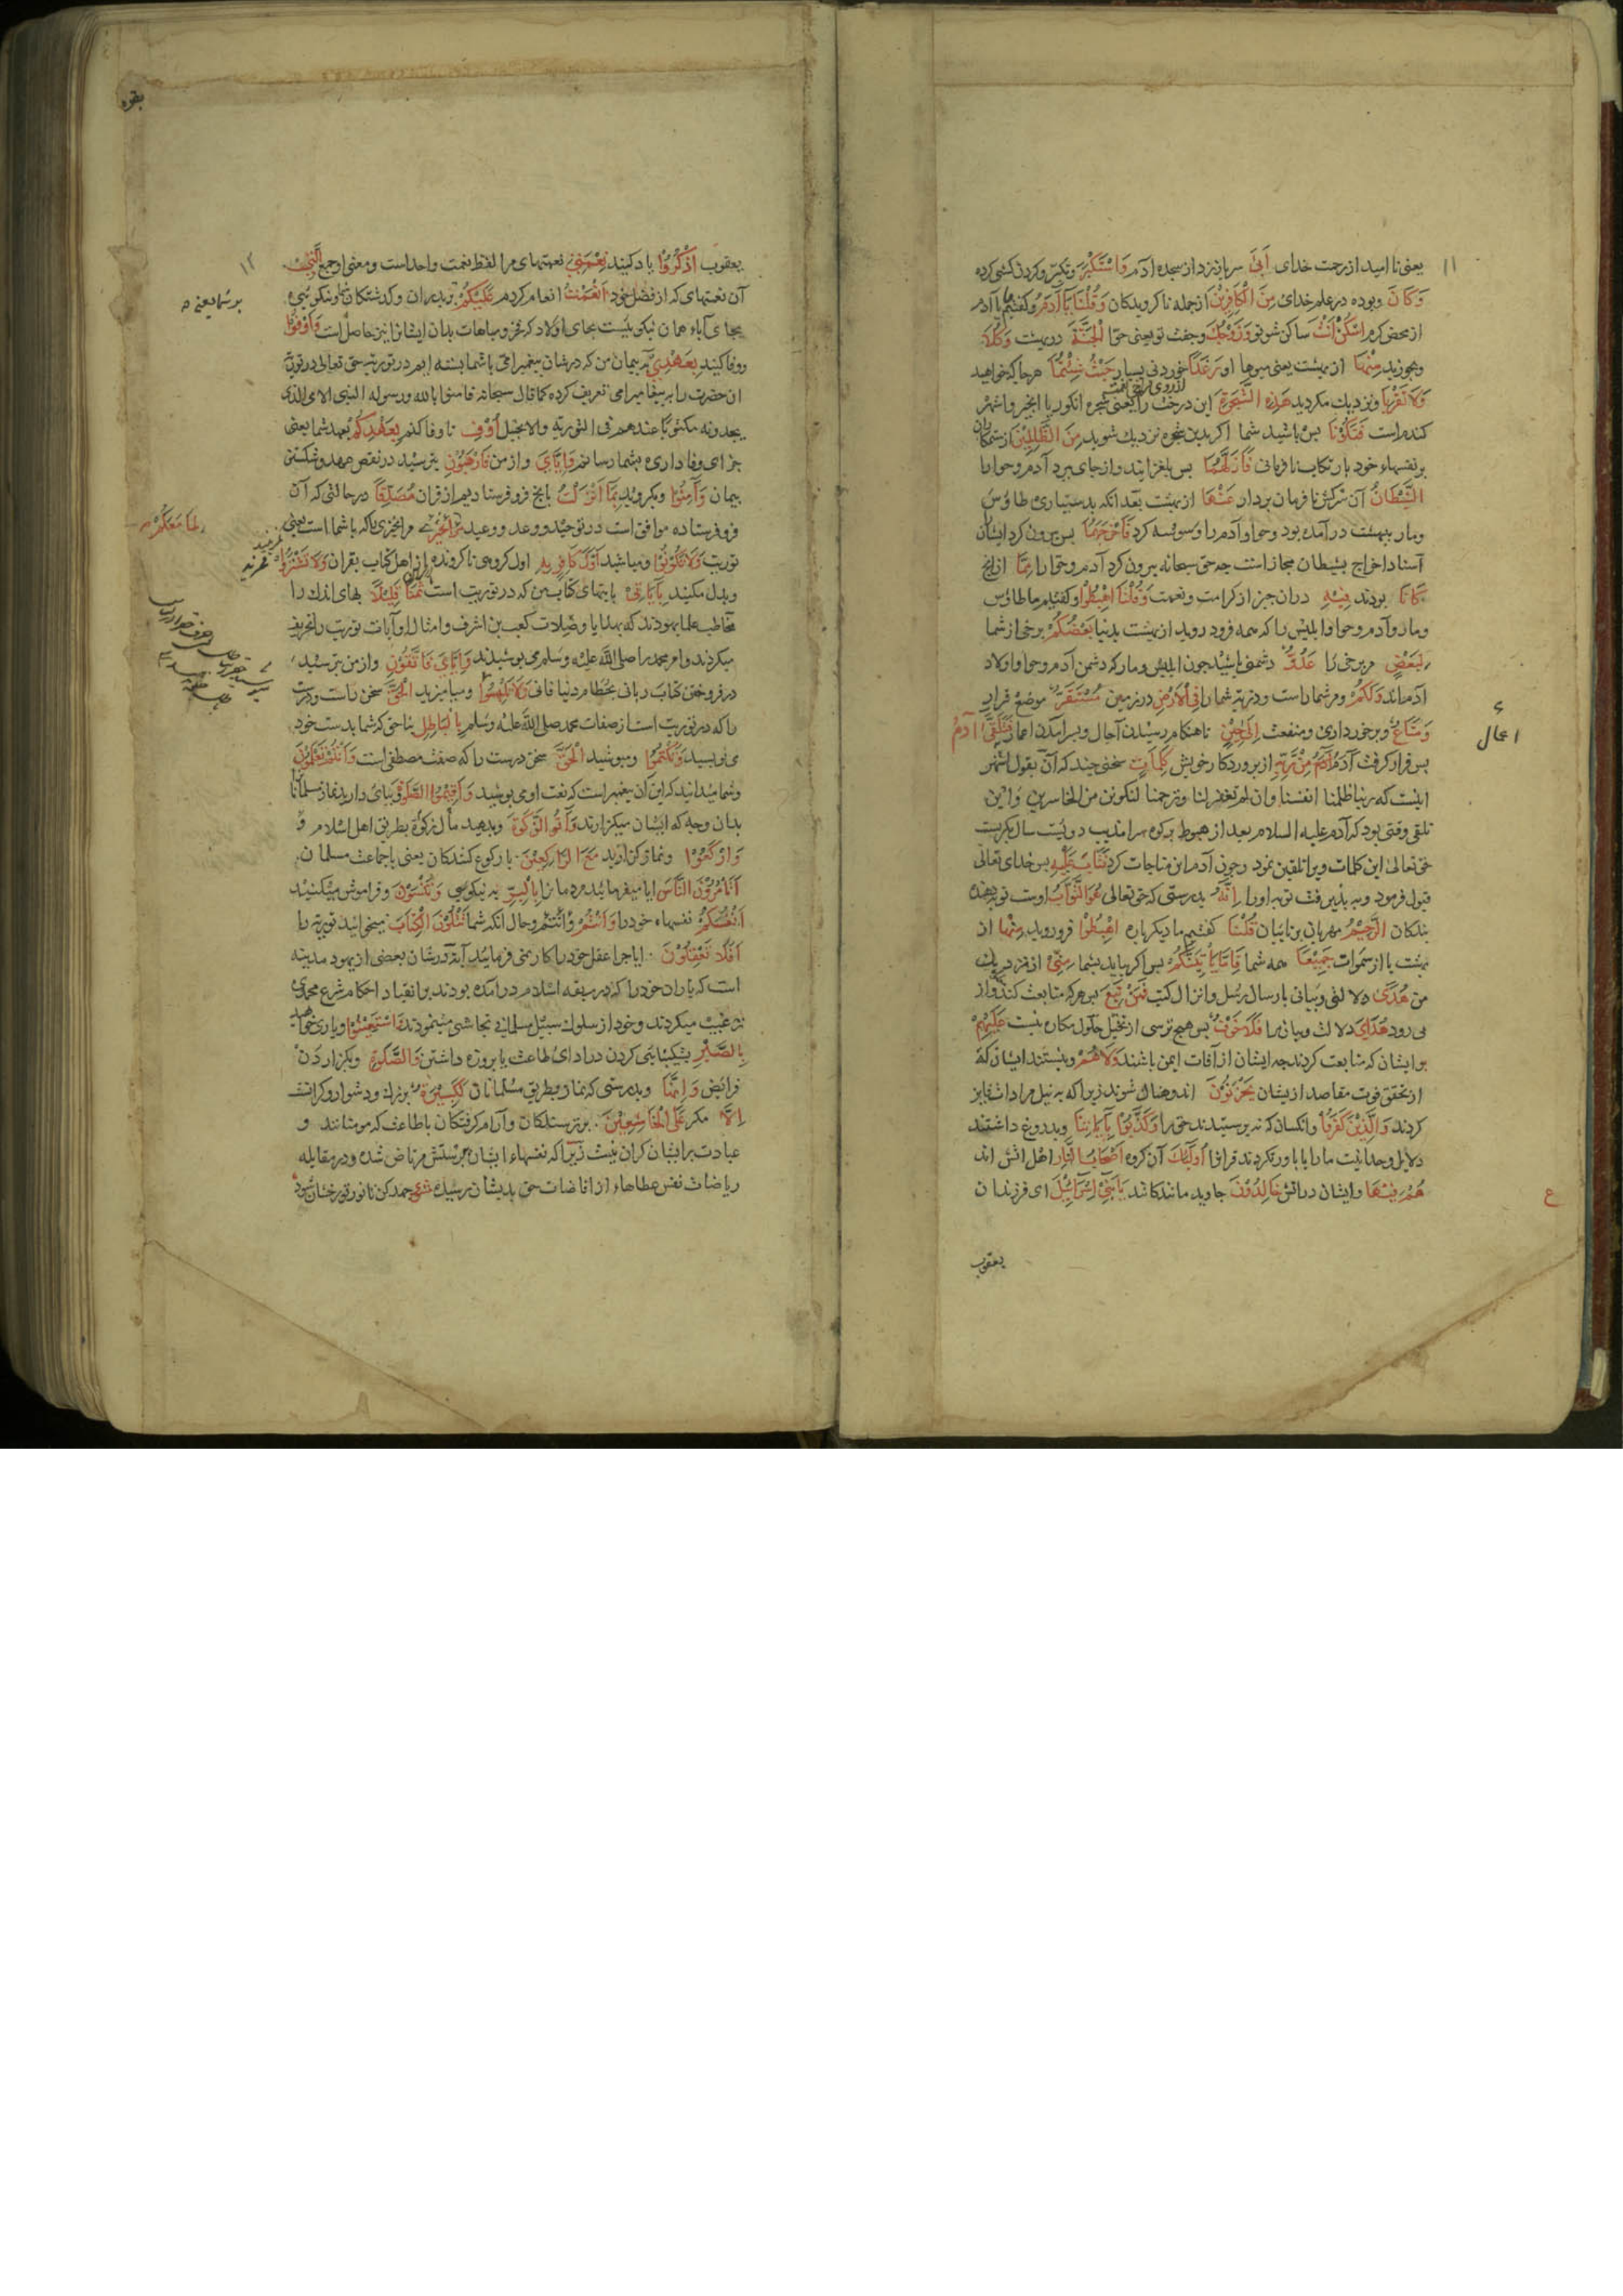 یعنی نا امید از رحمت خدای أَبَىٰ سر باز زد از سجده آدم وَاسْتَكْبَرَ وتکبر کرد وکردن کشی کرد
وَكَانَ وبوده در علم خدای مِنَ الْكَافِرِينَ از جمله ناکرویدکان وَقُلْنَا يَا آدَمُ وکفتیم ما یا آدم
از محض کرم اسْكُنْ أَنْتَ ساکن شو تو وَزَوْجُكَ وجفت تو یعنی حوا الْجَنَّةَ در بهشت وَكُلَا
وبخورید مِنْهَا از بهشت یعنی میوهای او رَغَدًا خوردنی بسیار حَيْثُ شِئْتُمَا هر جا که خواهید
وَلَا تَقْرَبَا ونزدیك مکردید هَذِهِ الشَّجَرَةَ این درخت را یعنی شجره انکور یا انجیر واشهر
کندم است فَتَكُونَا پس باشید شما اکر بدین شجره نزدیك شوید مِنَ الظَّالِمِينَ از ستمکاران
بر نفسهاء خود بارتکاب نافرمانی فَأَزَلَّهُمَا پس بلغزانید واز جای ببرد آدم وحوا را
الشَّيْطَانُ آن سرکش نافرمان بردار عَنْهَا از بهشت بعد انکه بدستیاری طاوس
ومار ببهشت در آمده بود وحوا وآدم را وسوسه کرد فَأَخْرَجَهُمَا پس بیرون کرد ایشان را
اسناد اخراج بشیطان مجاز است چه حق سبحانه بیرون کرد آدم وحوا را مِمَّا از انچ
كَانَا بودند فِيهِ دران چیز از کرامت ونعمت وَقُلْنَا اهْبِطُوا وکفتیم ما طاوس
ومار وآدم وحوا وابلیس را که همه فرود روید از بهشت بدنیا بَعْضُكُمْ برخی از شما
لِبَعْضٍ مر برخی را عَدُوٌّ دشمنی باشید چون ابلیس ومار که دشمن آدم وحوا واولاد
آدم اند وَلَكُمْ ومر شما راست وذریه شما را فِي الْأَرْضِ در زمین مُسْتَقَرٌّ موضع قرار
وَمَتَاعٌ وبرخورداری ومنفعت إِلَىٰ حِينٍ تا هنکام رسیدن آجال وبسر آمدن اعمار فَتَلَقَّىٰ آدَمُ
پس فرا کرفت آدم مِنْ رَبِّهِ از پروردکار خویش كَلِمَاتٍ سخنی چند که آن بقول اشهر
اینست که ربنا ظلمنا انفسنا وان لم تغفر لنا وترحمنا لنکونن من الخاسرین واین
تلقی وقتی بود که آدم علیه السلام بعد از هبوط بر کوه سراندیب دویست سال بکریست
حق تعالی این کلمات ویرا تلقین نمود وچون آدم این مناجات کرد فَتَابَ عَلَيْهِ پس خدای تعالی
قبول فرمود وبه پذیرفت توبه او را إِنَّهُ بدرستی که حق تعالی هُوَ التَّوَّابُ اوست توبه دهنده
بندکان الرَّحِيمُ مهربانی بر تایبان قُلْنَا کفتیم ما دیکر باره اهْبِطُوا فرو روید مِنْهَا از
بهشت یا از سموات جَمِيعًا همه شما فَإِمَّا يَأْتِيَنَّكُمْ پس اکر بیاید بشما مِنِّي از نزدیك
من هُدًى دلالتی وبیانی بارسال رسل وانزال کتب فَمَنْ تَبِعَ پس هر که متابعت کند واز
پی رود هُدَايَ دلالت وبیان مرا فَلَا خَوْفٌ پس هیچ ترسی از تخیل حلول مکاره نیست عَلَيْهِمْ
بر ایشان که متابعت کردند چه ایشان از آفات ایمن باشند وَلَا هُمْ ونیستند ایشان که
از تحقق فوت مقاصد از یشان يَحْزَنُونَ اندوهناك شوند زیرا که به نیل مرادات فایز
کردند وَالَّذِينَ كَفَرُوا وانکسان که نه پرستیدند حق را وَكَذَّبُوا بِآيَاتِنَا وبدروغ داشتند
دلایل وحدانیت ما را یا باور نکردند قرانرا أُولَئِكَ آن کروه أَصْحَابُ النَّارِ اهل اتش اند
هُمْ فِيهَا وایشان دراتش خَالِدُونَ جاوید مانندکانند يَا بَنِي إِسْرَائِيلَ ای فرزندان
یعقوب
۱۱
ع
بقره
۱۲
یعقوب اذْكُرُوا یاد کنید نِعْمَتِيَ نعمتهای مرا لفظ نعمت واحد است ومعنی او جمع الَّتِي
آن نعمتهای که از فضل خود أَنْعَمْتُ انعام کردم عَلَيْكُمْ وپدران وکذشتکان شما ونیکویی
بجای آباء همان نیکوییست بجای اولاد که فخر ومباهات بدان ایشانرا نیز حاصل است وَأَوْفُوا
ووفا کنید بِعَهْدِي به پیمان من که درشان پیغمبر امی باشما بسته ام در توریت حق تعالی در توریة
ان حضرت را به پیغامبر امی تعریف کرده کما قال سبحانه فامنوا بالله ورسوله النبی الامی الذی
یجدونه مکتوبا عندهم فی التوریة والانجیل أُوفِ تا وفا کنم بِعَهْدِكُمْ بعهد شما یعنی
جزای وفاداری بشما رسانم وَإِيَّايَ واز من فَارْهَبُونِ بترسید در نقص عهد وشکستن
پیمان وَآمِنُوا وبکروید بِمَا أَنْزَلْتُ بانچ فرو فرستادیم از قران مُصَدِّقًا در حالتی که آن
فرو فرستاده موافق است در توحید ووعد ووعید مر انچیزی را که باشما است یعنی
لِمَا مَعَكُمْ
توریت وَلَا تَكُونُوا ومباشید أَوَّلَ كَافِرٍ بِهِ اول کروهی ناکرونده از اهل کتاب بقران وَلَا تَشْتَرُوا
وبدل مکنید بِآيَاتِي بایتهای کتاب من که در توریت است ثَمَنًا قَلِيلًا بهای اندك را
مخاطب علما یهودند که بهدایا وصلات کعب بن اشرف وامثال او آیات توریت را تحریف
میکردند وامر محمد را صلی الله علیه وسلم می پوشیدند وَإِيَّايَ فَاتَّقُونِ واز من بترسید
در فروختن کتاب ربانی بحطام دنیا فانی وَلَا تَلْبِسُوا ومیامیزید الْحَقَّ سخن راست ودرست
را که در توریت است از صفات محمد صلی الله علیه وسلم بِالْبَاطِلِ بناحق که شما بدست خود
می نویسید وَتَكْتُمُوا ومپوشید الْحَقَّ سخن درست را که صفت مصطفی است وَأَنْتُمْ تَعْلَمُونَ
وشما میدانید که این آن پیغمبر است که نعت او می پوشید وَأَقِيمُوا الصَّلَاةَ وبپای دارید نماز مسلمانان
بدان وجه که ایشان میکزارند وَآتُوا الزَّكَاةَ وبدهید مال زکوة بطریق اهل اسلام و
وَارْكَعُوا ونماز کزارید مَعَ الرَّاكِعِينَ با رکوع کنندکان یعنی با جماعت مسلمانان
أَتَأْمُرُونَ النَّاسَ ایا میفرمائید مردمانرا بِالْبِرِّ به نیکویی وَتَنْسَوْنَ وفراموش میکنید
أَنْفُسَكُمْ نفسهاء خود را وَأَنْتُمْ وحال آنکه شما تَتْلُونَ الْكِتَابَ میخوانید توریة را
أَفَلَا تَعْقِلُونَ ایا چرا عقل خود را کار نمی فرمائید آیة درشان بعضی از یهود مدینه
است که یاران خود را که در ربقه اسلام درامده بودند بر انقیاد احکام شرع محمدی
ترغیب میکردند وخود از سلوك سبیل مسلمانی تحاشی مینمودند وَاسْتَعِينُوا ویاری خواهید
بِالصَّبْرِ بشکیبائی کردن در ادای طاعت یا بروزه داشتن وَالصَّلَاةِ وبکزاردن
فرائض وَإِنَّهَا وبدرستی که نماز بطریق مسلمانان لَكَبِيرَةٌ بزرك ودشوار وکرانست
إِلَّا مکر عَلَى الْخَاشِعِينَ بر ترسندکان وآرام کرفتکان باطاعت که مومنانند و
عبادت بر ایشان کران نیست زیرا که نفسهاء ایشان بپرستش مرتاض شده ودر مقابله
ریاضات نفس عطاهاء از افاضات حق بدیشان رسیده جهد کن تا نور تو رخشان شود